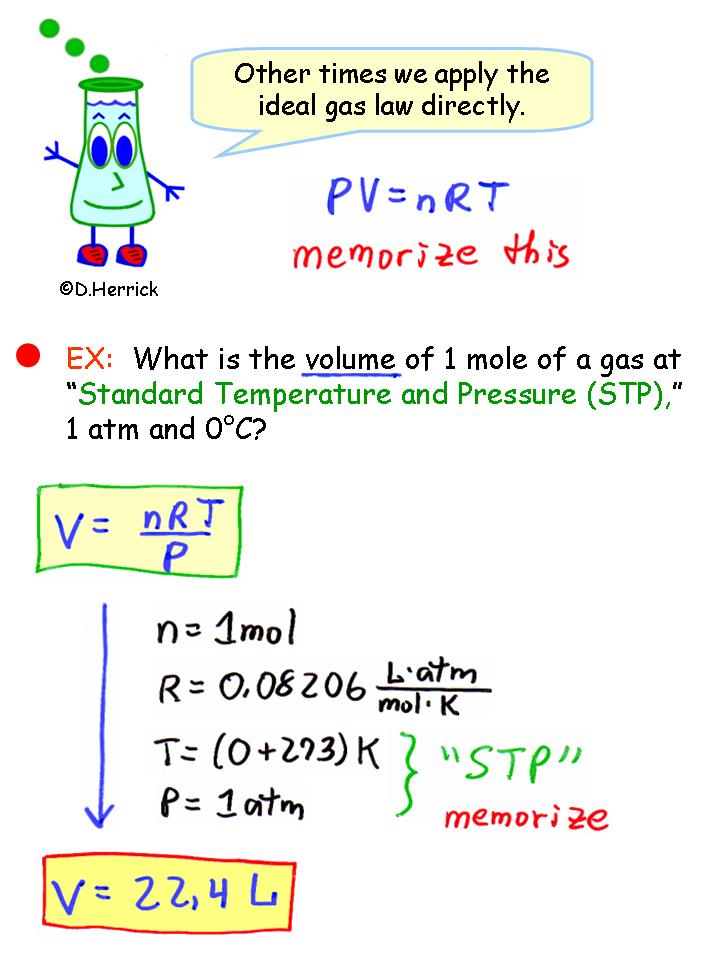 Other times we apply the
ideal gas law directly.
PV=nRT
memorize this
©D.Herrick
EX: What is the volume of 1 mole of a gas at
“Standard Temperature and Pressure (STP),”
1 atm and 0°C?
V = nRT/P
n = 1mol
R = 0.08206 L·atm/mol·K
T = (0+273)K
P = 1 atm
"STP"
memorize
V = 22.4 L